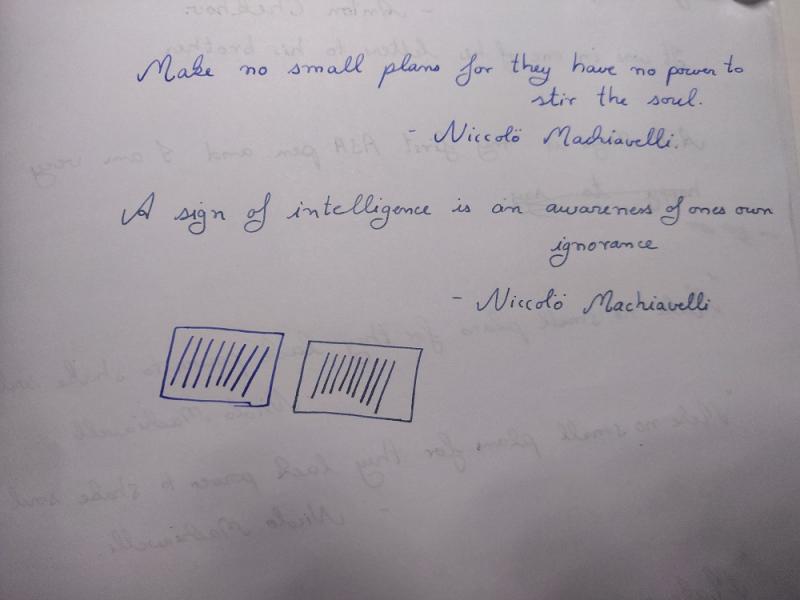 Make no small plans for they have no power to
stir the soul.
- Niccolö Machiavelli.
A sign of intelligence is an awareness of ones own
ignorance
- Niccolö Machiavelli